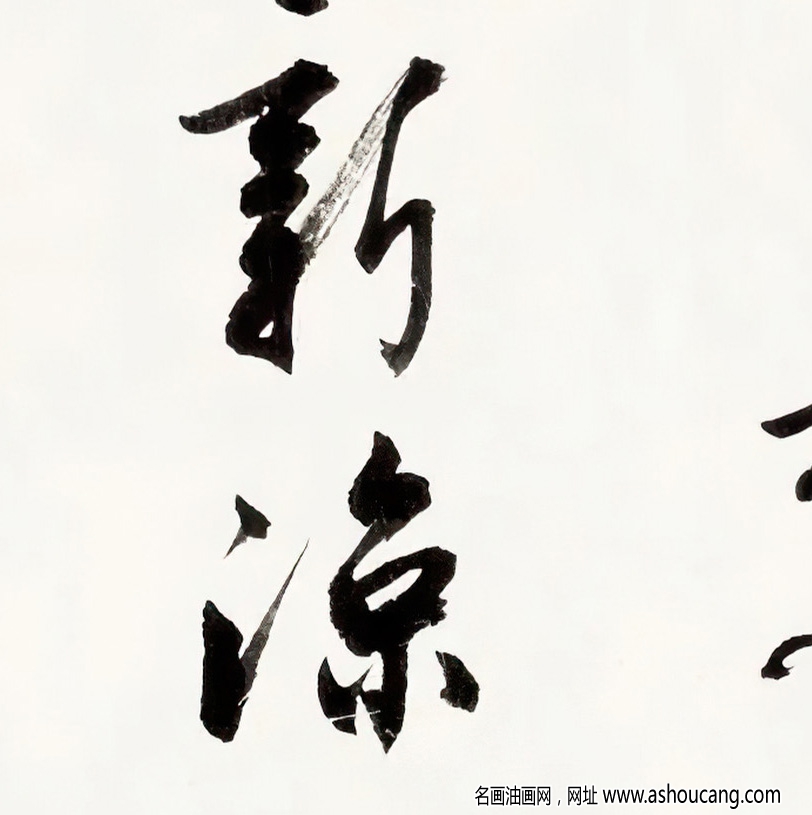 新
凉
名画油画网，网址 www.ashoucang.com